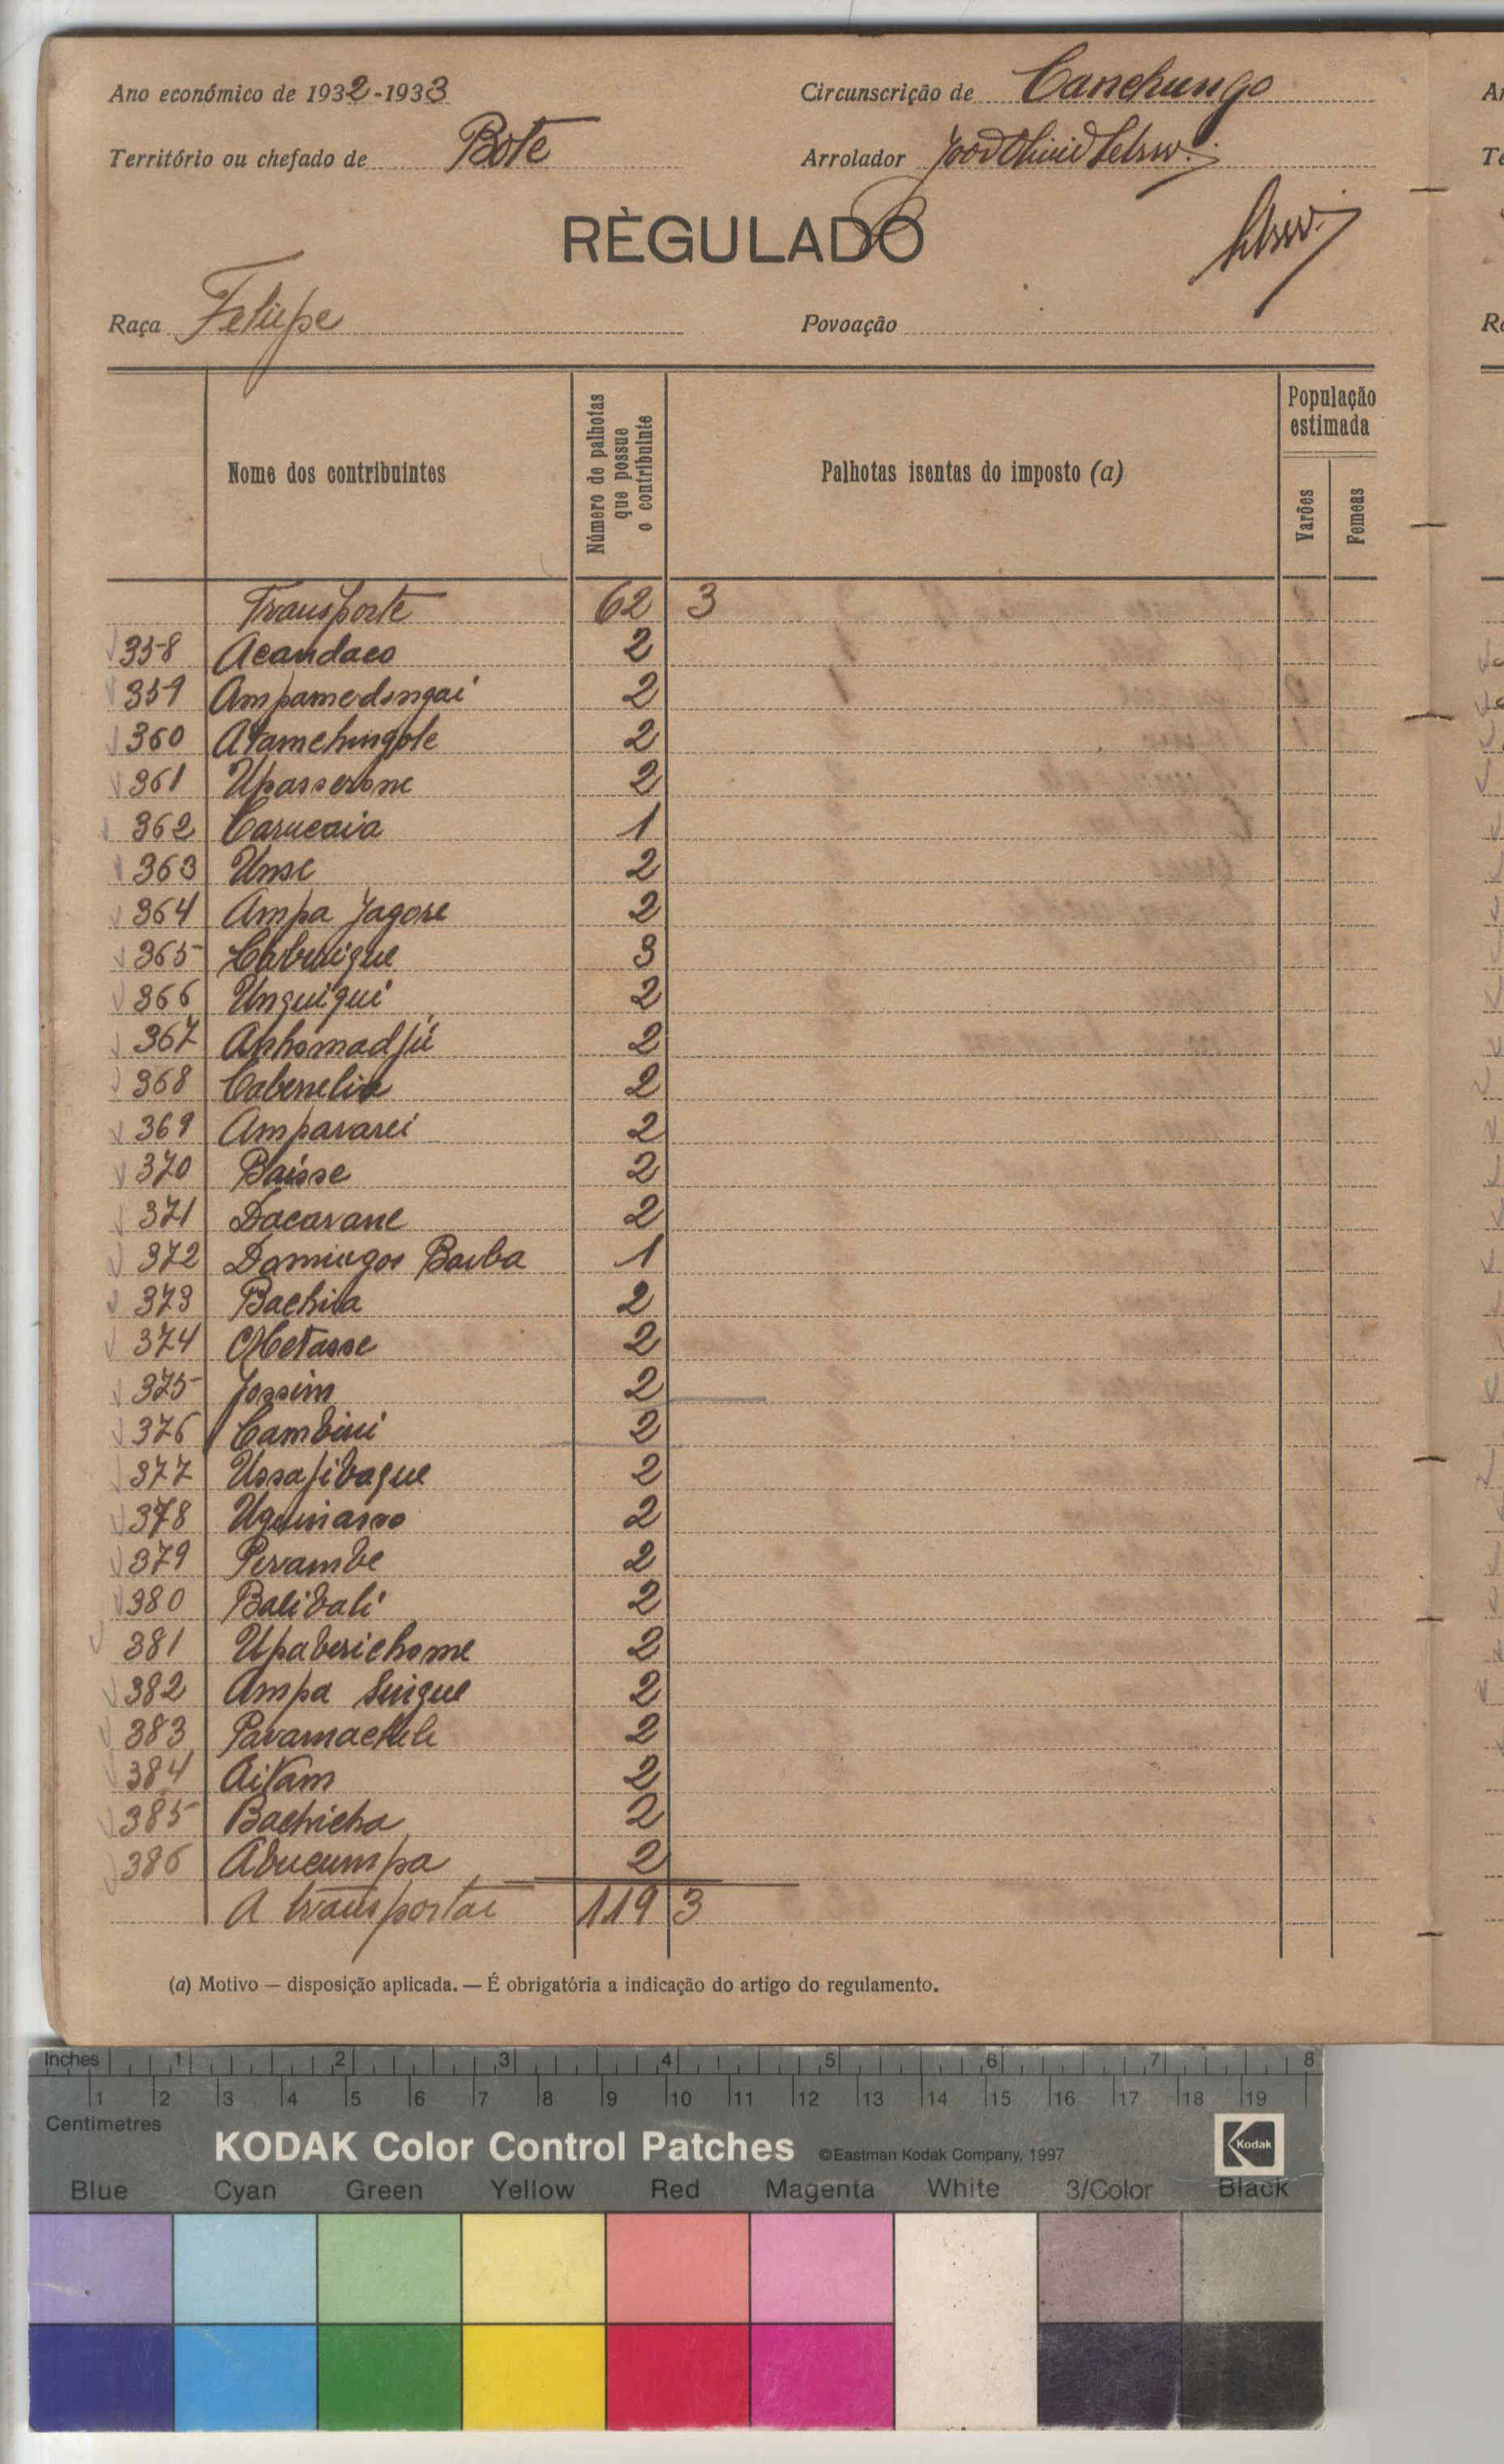 Ano económico de 1932-1933
Circunscrição de Canchungo
Território ou chefado de Bote
Arrolador
RÈGULADO
Raça Feliepe
Povoação
Nome dos contribuintes
Número de palhotas que possue o contribuinte
Palhotas isentas do imposto (a)
População estimada
Varões
Femeas
Transporte 62 3
358 Acandaco 2
359 Ampamedongai 2
360 Atamehingole 2
361 Upasserone 2
362 Carucaia 1
363 Unse 2
364 Ampa Jagore 2
365 3
366 Unguigui 2
367 Aphomadjú 2
368 Cabenelia 2
369 Ampararei 2
370 Baisse 2
371 Dacarane 2
372 Domingos Barba 1
373 Bachila 2
374 Metasse 2
375 Jossim 2
376 Cambini 2
377 Ussafibague 2
378 2
379 Perambe 2
380 Balibali 2
381 Upaberichome 2
382 Ampa Singue 2
383 2
384 Aitam 2
385 Bachicha 2
386 Abucumpa 2
A transportar 119 3
(a) Motivo — disposição aplicada. — É obrigatória a indicação do artigo do regulamento.
Inches 1 2 3 4 5 6 7 8
1 2 3 4 5 6 7 8 9 10 11 12 13 14 15 16 17 18 19
Centimetres
KODAK Color Control Patches ©Eastman Kodak Company, 1997 Kodak
Blue Cyan Green Yellow Red Magenta White 3/Color Black